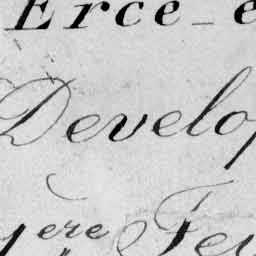 Erce_e
Develop
1ere Feu